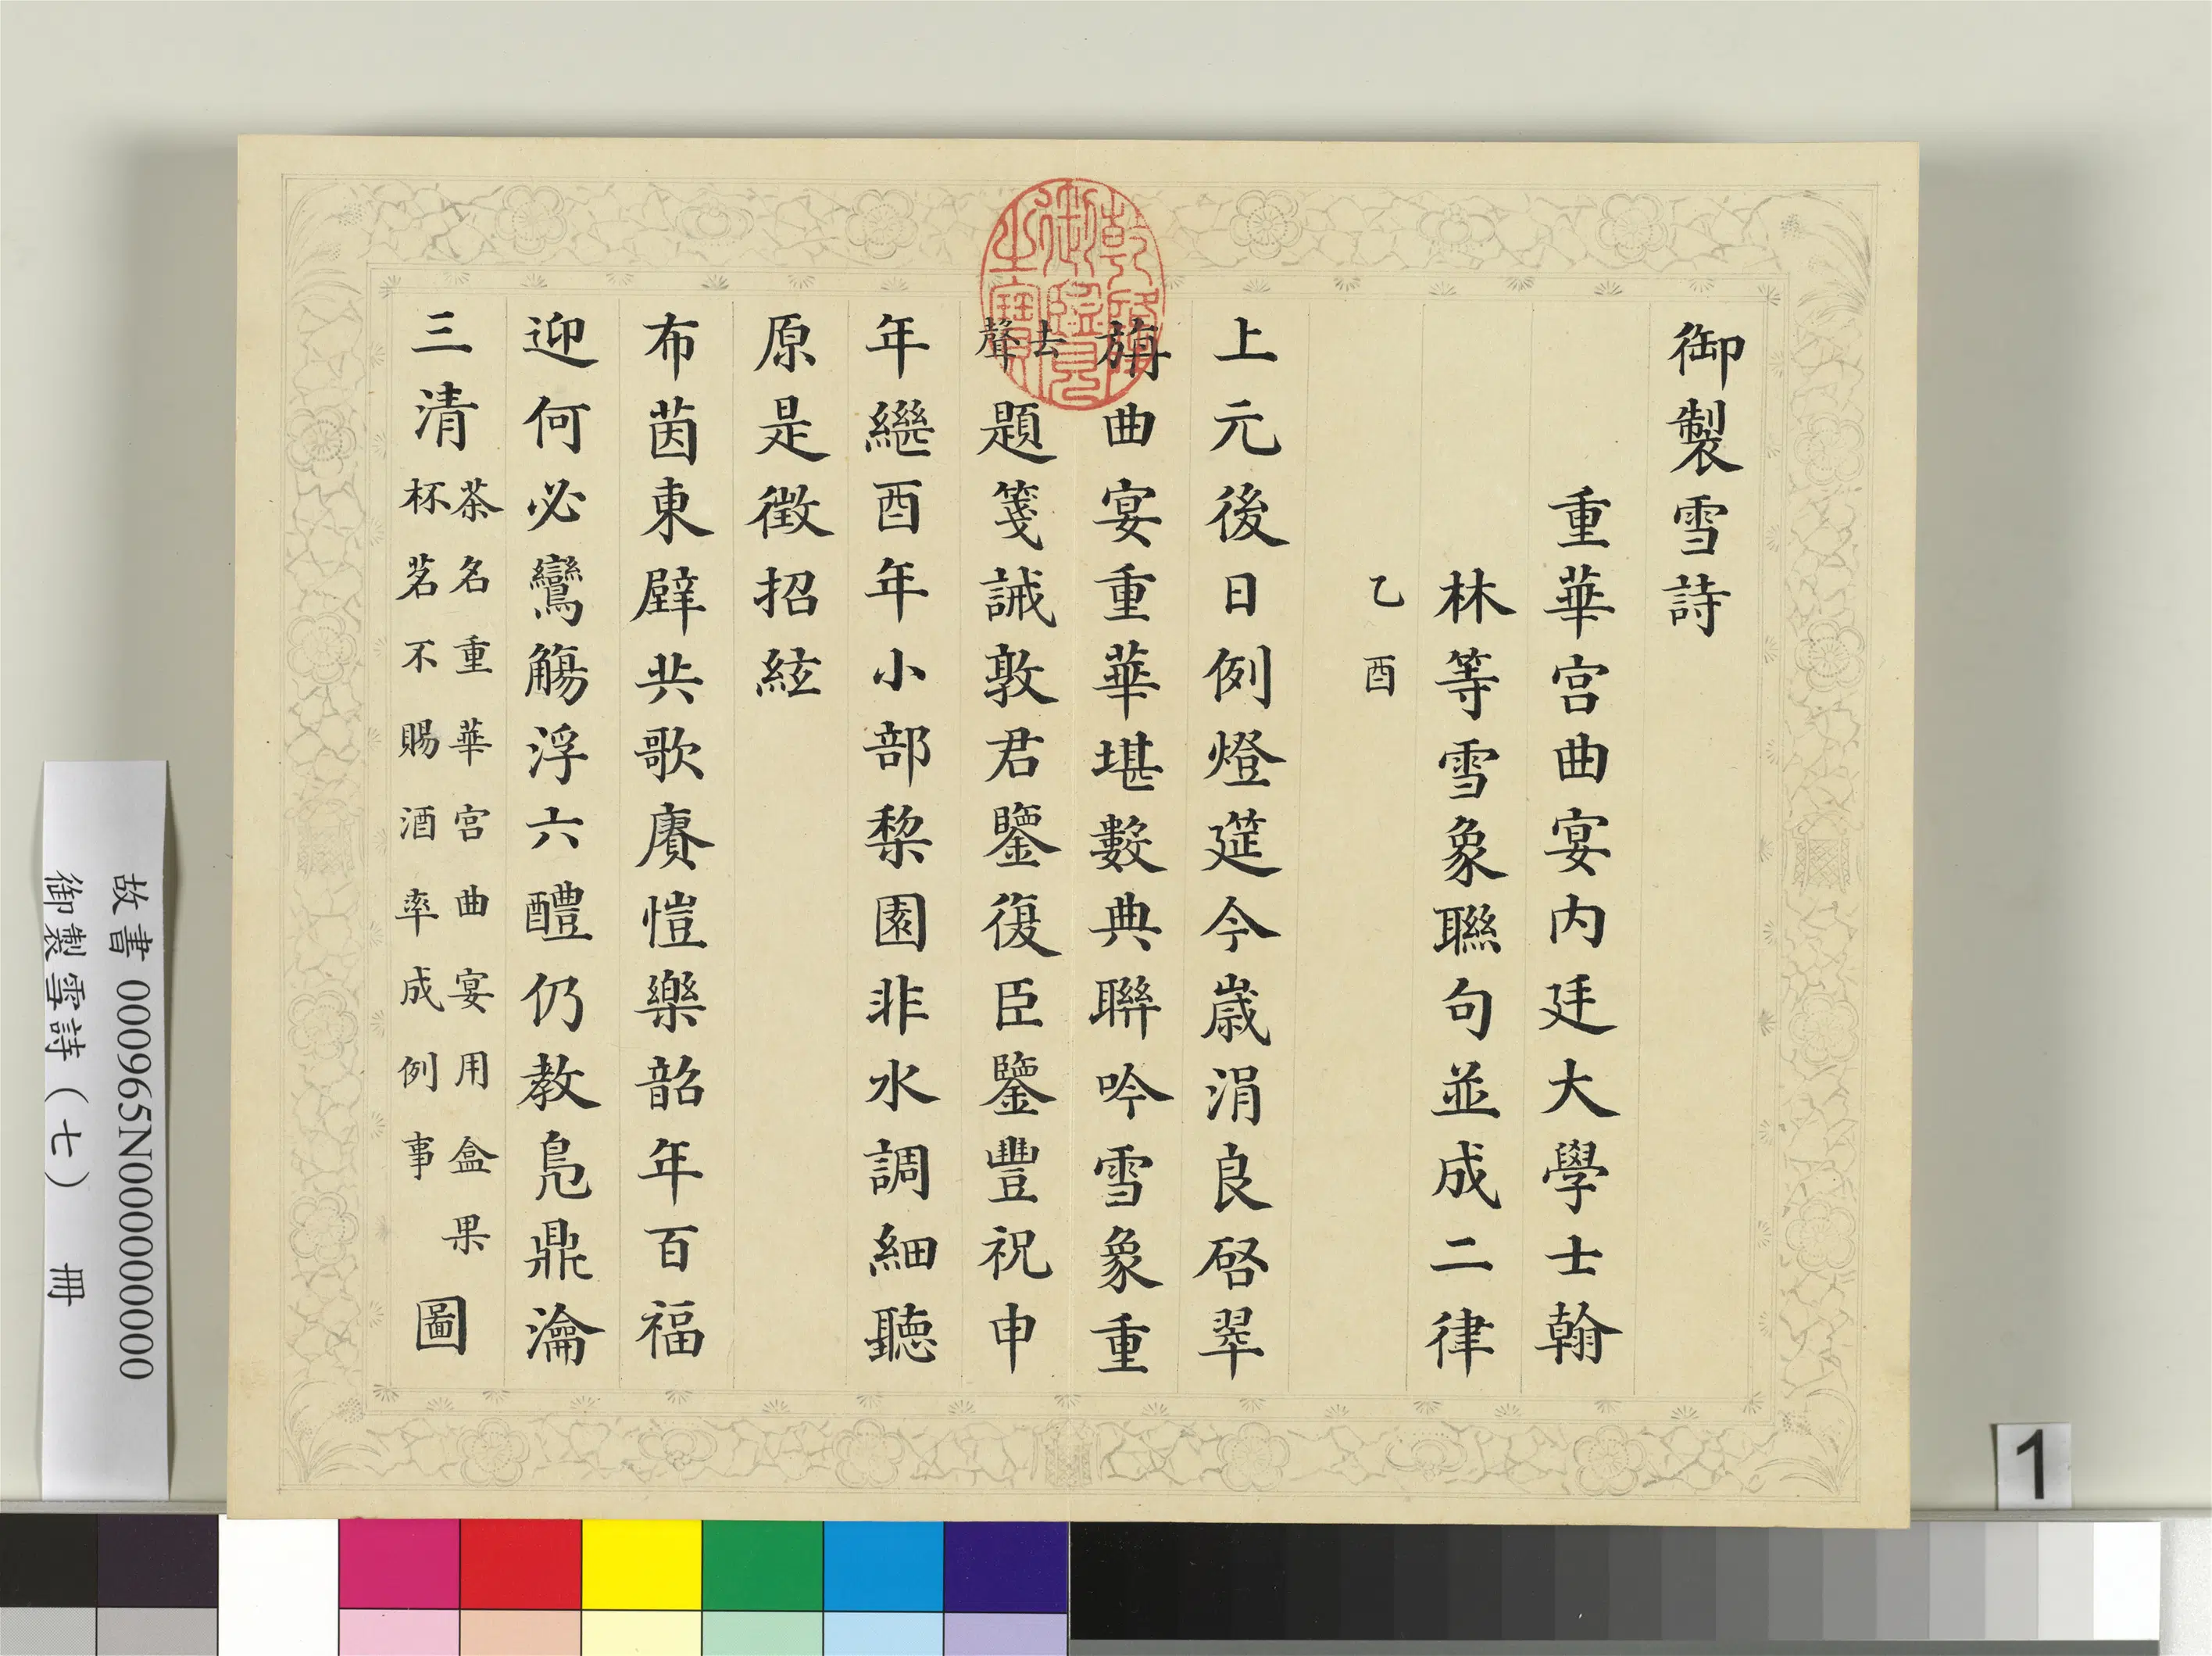 御製雪詩
重華宮曲宴内廷大學士翰
林等雪象聯句並成二律
乙酉
上元後日例燈筵今歲涓良啓翠
旃曲宴重華堪數典聯吟雪象重
去聲題箋誡敦君鑒復臣鑒豐祝申
年繼酉年小部棃園非水調細聽
原是徵招絃
布茵東壁共歌賡愷樂韶年百福
迎何必鸞觴浮六醴仍教鳧鼎瀹
三清茶名重華宮曲宴用盒果杯茗不賜酒率成例事圖
乾隆御覽之寶
故書 000965N000000000
御製雪詩（七） 冊
1